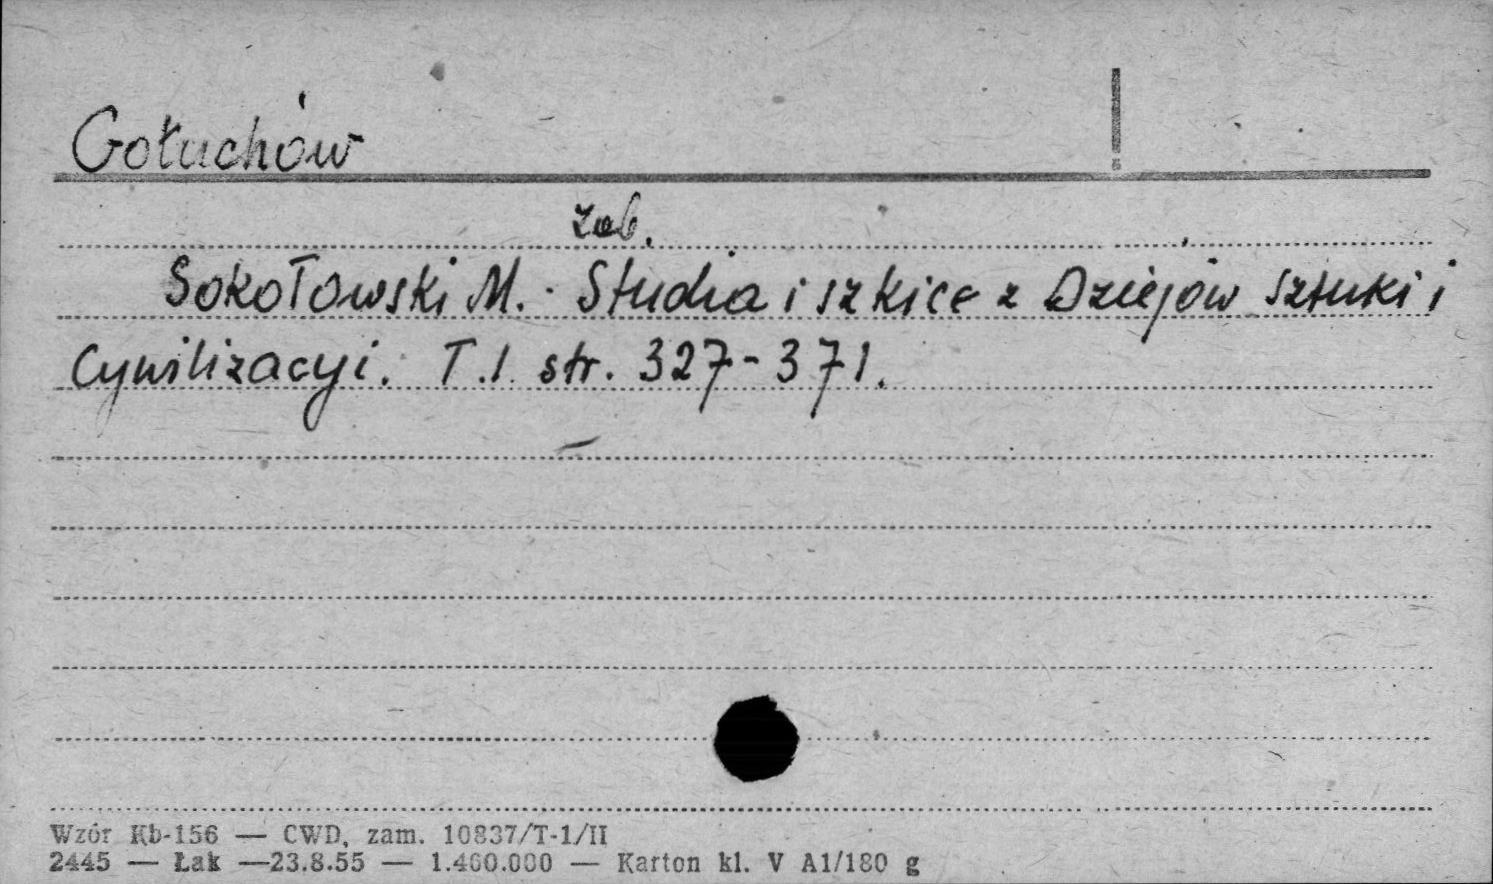 Gołuchów
zob.
Sokołowski M. Studia i szkice z Dziejów sztuki i
Cywilizacyi. T.I. str. 327-371.
Wzór Kb-156 — CWD, zam. 10837/T-1/II
2445 — Łak —23.8.55 — 1.400.000 — Karton kl. V A1/180 g